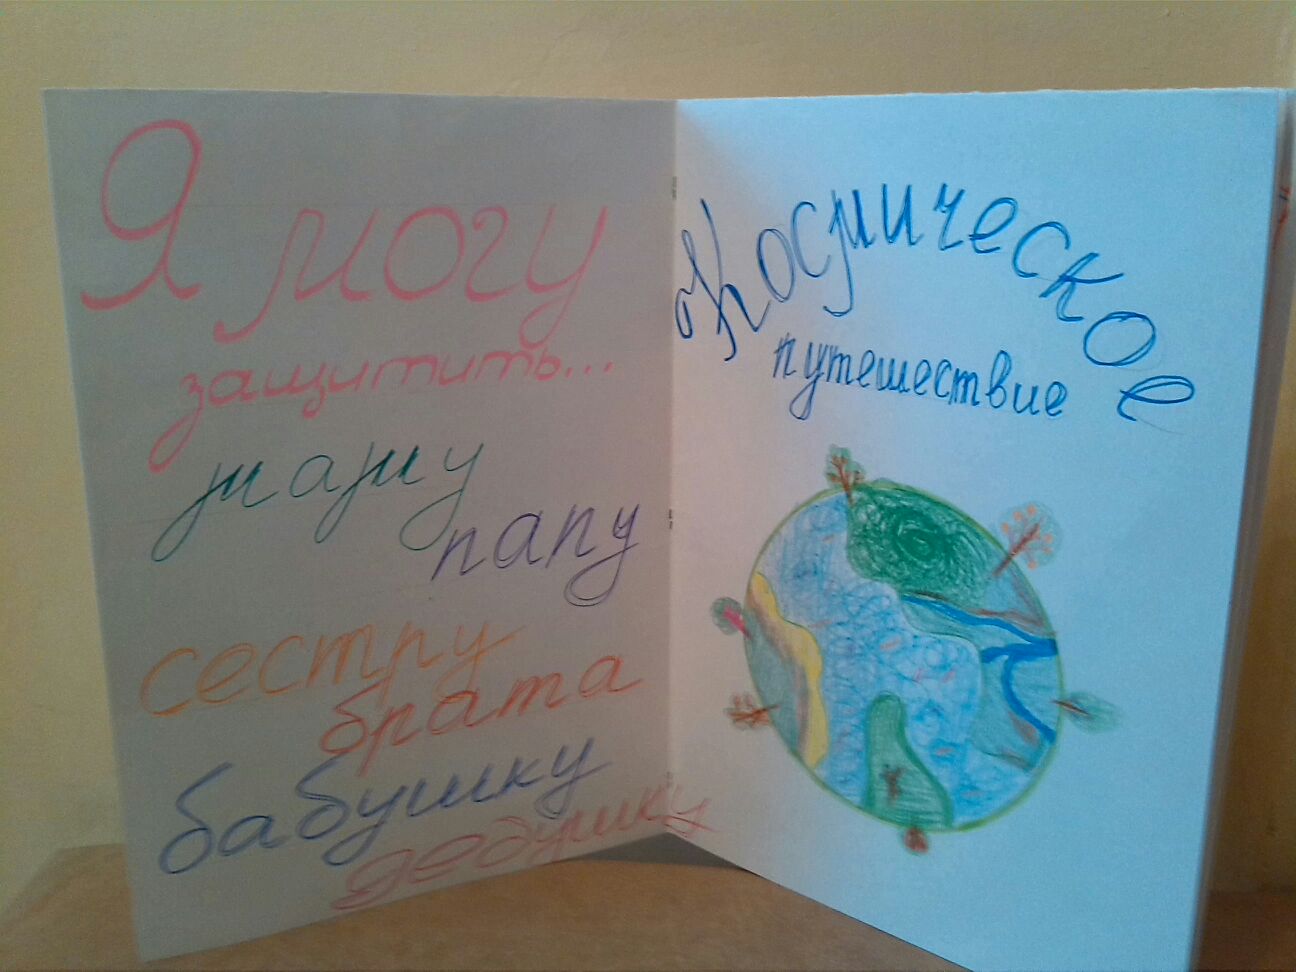 Я могу
защитить...
маму
папу
сестру
брата
бабушку
дедушку
Космическое
путешествие